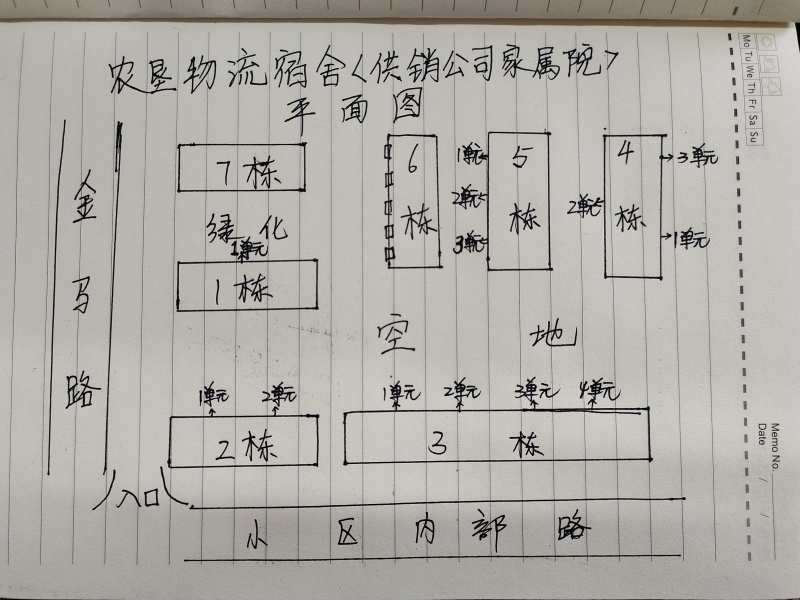 农垦物流宿舍<供销公司家属院>
平面图
Mo Tu We Th Fr Sa Su
金马路
7栋
绿化
1单元
1栋
6栋
1单元
2单元
3单元
5栋
2单元
4栋
3单元
1单元
空地
1单元 2单元
2栋
1单元 2单元 3单元 4单元
3栋
Memo No.
Date / /
入口
小区内部路